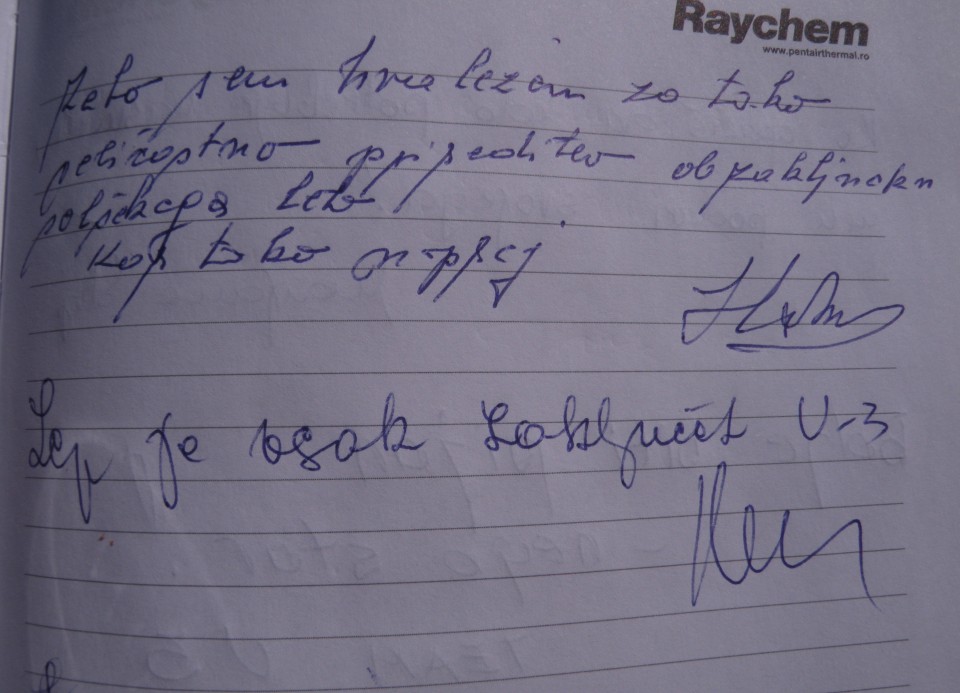 Raychem
www.pentairthermal.ro
zelo sem hvaležen za tako
veličastno prireditev ob zaključku
šolskega leta
kar tako naprej
Lep je vsak zaključek U-3